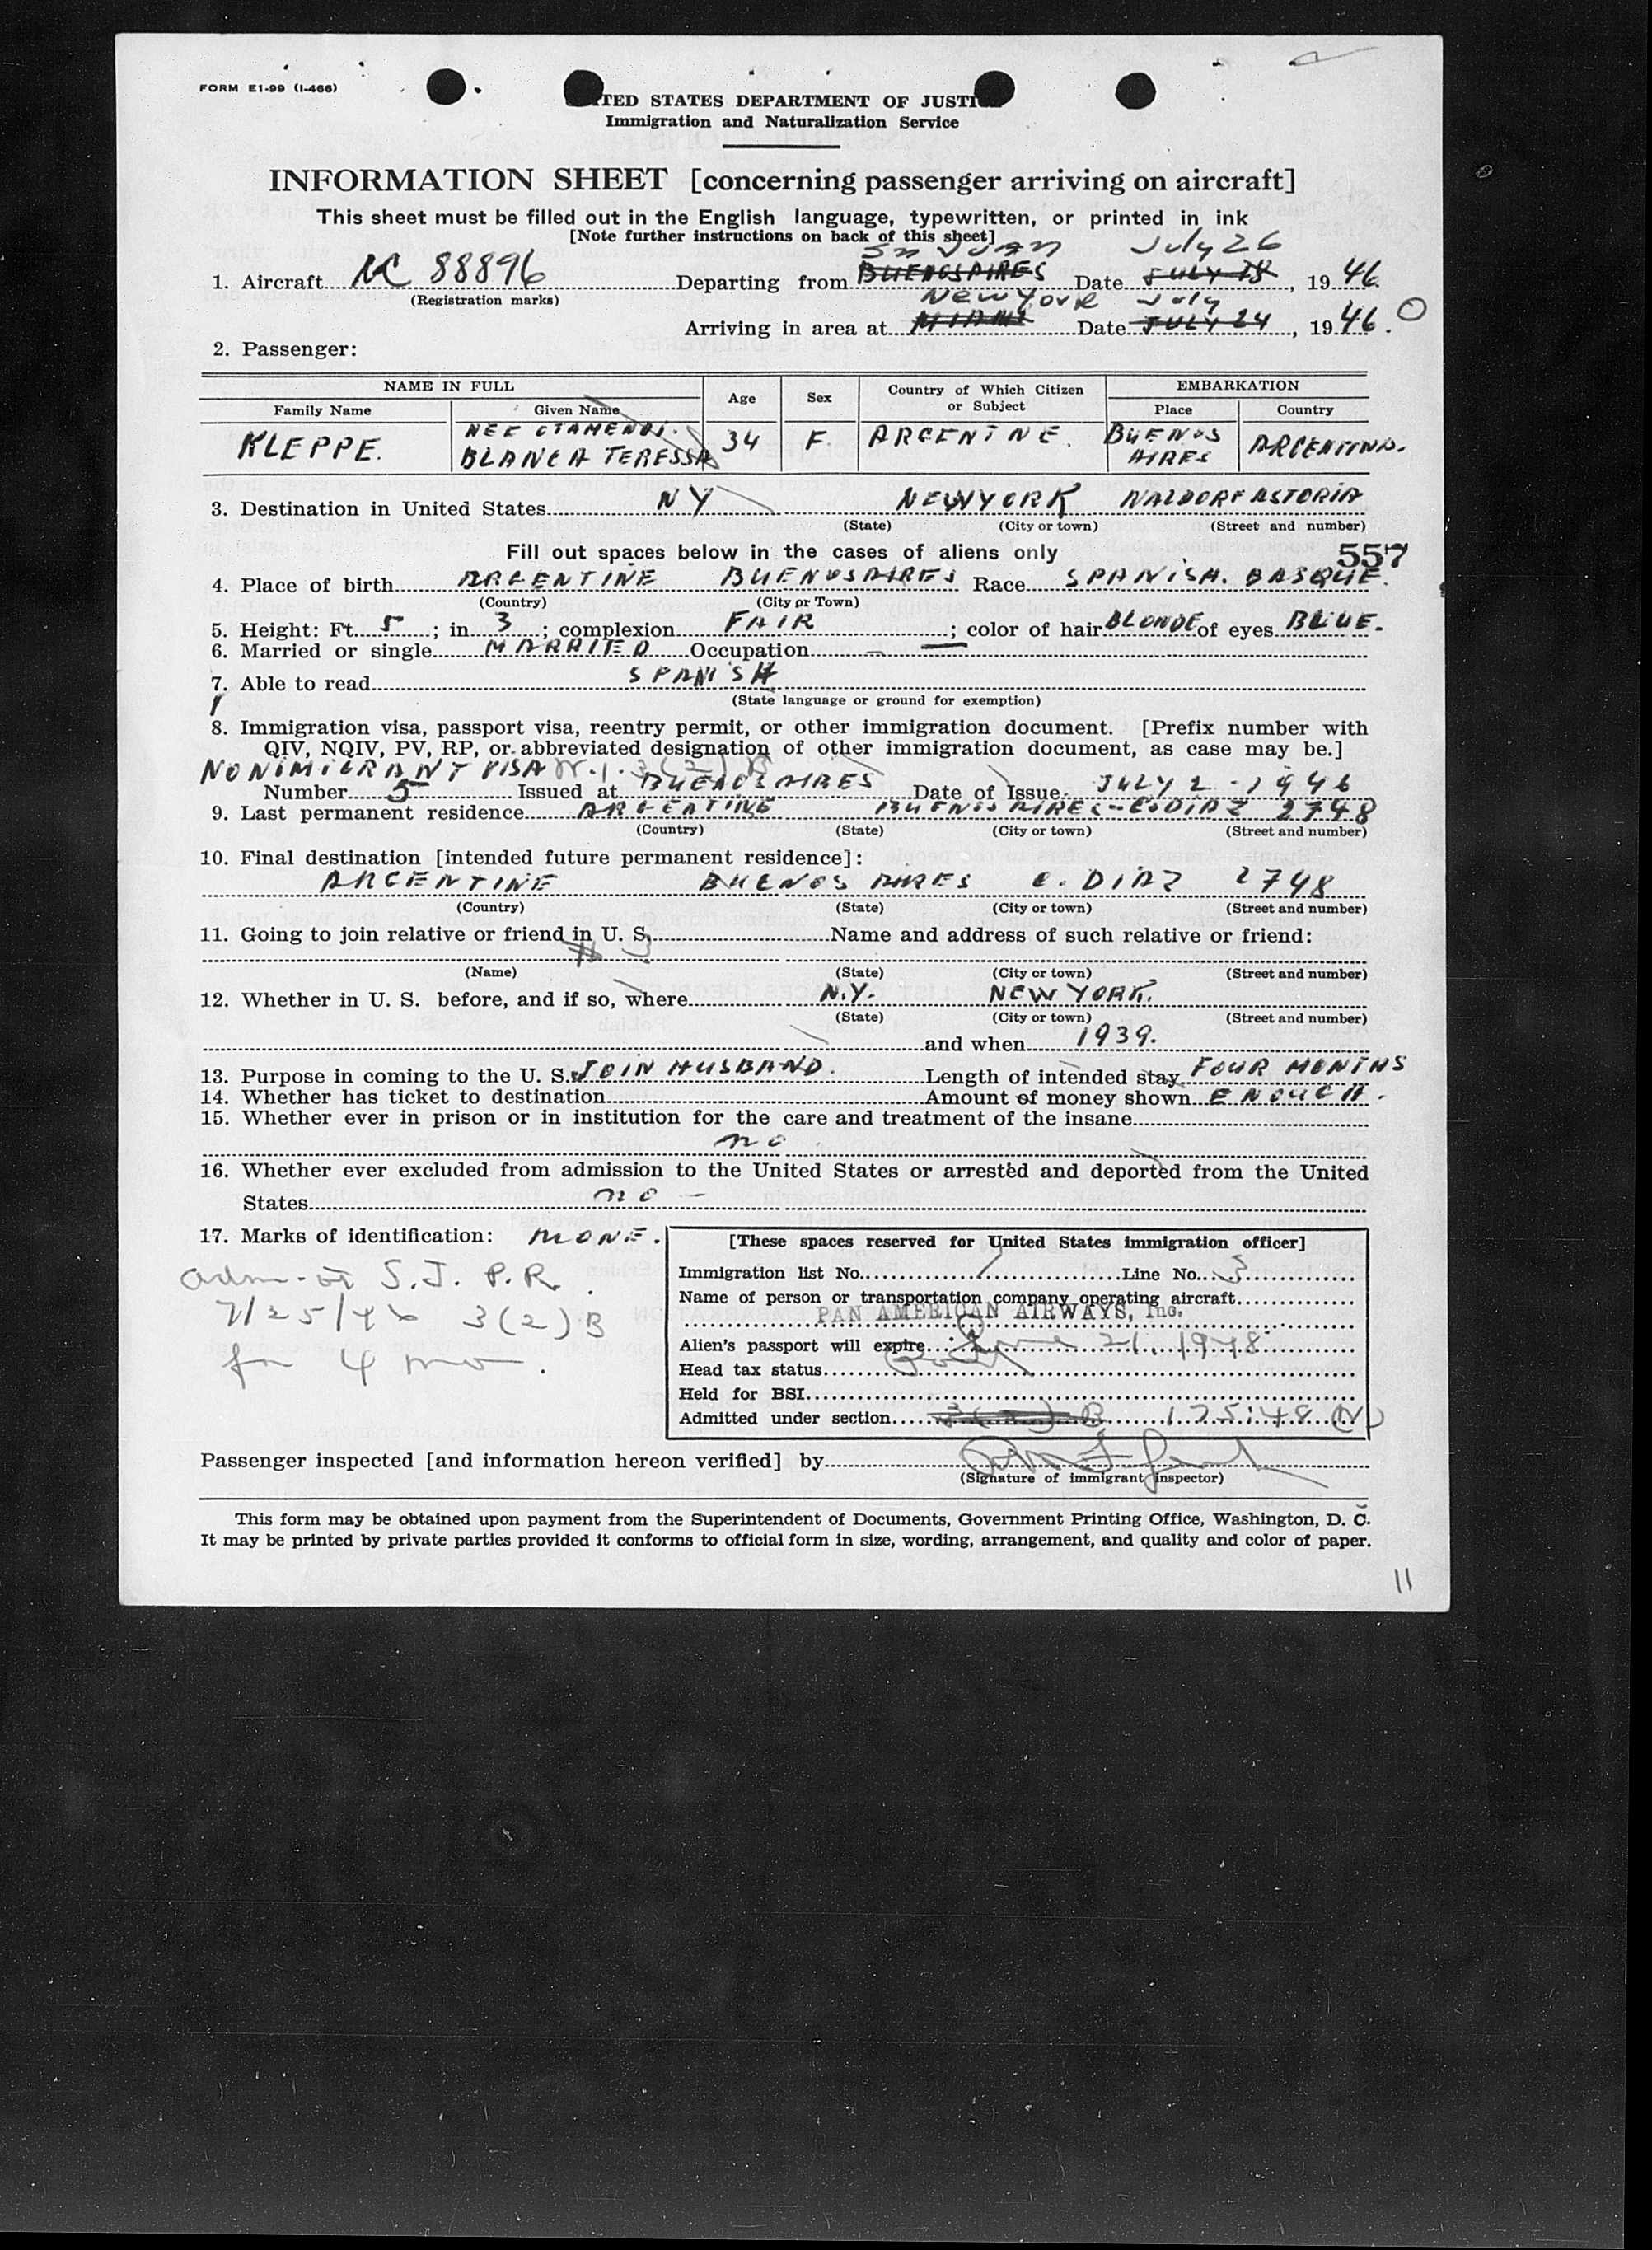 FORM E1-99 (I-466)
TED STATES DEPARTMENT OF JUSTI
Immigration and Naturalization Service
INFORMATION SHEET [concerning passenger arriving on aircraft]
This sheet must be filled out in the English language, typewritten, or printed in ink
[Note further instructions on back of this sheet]
Sn JUAN July 26
1. Aircraft NC 88896 Departing from BUENOS AIRES Date JULY 18, 1946
(Registration marks) New York July
Arriving in area at MIAMI Date JULY 24, 1946.
2. Passenger:
NAME IN FULL Age Sex Country of Which Citizen or Subject EMBARKATION
Family Name Given Name Place Country
NEE OTAMENDI.
KLEPPE. BLANCA TERESSA 34 F. ARGENTINE. BUENOS AIRES ARGENTINA.
3. Destination in United States NY NEWYORK WALDORF ASTORIA
(State) (City or town) (Street and number)
Fill out spaces below in the cases of aliens only 557
4. Place of birth ARGENTINE BUENOS AIRES Race SPANISH. BASQUE.
(Country) (City or Town)
5. Height: Ft. 5; in 3; complexion FAIR; color of hair BLONDE of eyes BLUE.
6. Married or single MARRIED Occupation —
7. Able to read SPANISH
(State language or ground for exemption)
8. Immigration visa, passport visa, reentry permit, or other immigration document. [Prefix number with
QIV, NQIV, PV, RP, or abbreviated designation of other immigration document, as case may be.]
NONIMIGRANT VISA 3(2) B
Number 5 Issued at BUENOS AIRES Date of Issue JULY 2 - 1946
9. Last permanent residence ARGENTINE BUENOS AIRES - C. DIAZ 2748
(Country) (State) (City or town) (Street and number)
10. Final destination [intended future permanent residence]:
ARGENTINE BUENOS AIRES C. DIAZ 2748
(Country) (State) (City or town) (Street and number)
11. Going to join relative or friend in U. S. Name and address of such relative or friend:
# 3
(Name) (State) (City or town) (Street and number)
12. Whether in U. S. before, and if so, where N.Y. NEW YORK.
(State) (City or town) (Street and number)
and when 1939.
13. Purpose in coming to the U. S. JOIN HUSBAND. Length of intended stay FOUR MONTHS
14. Whether has ticket to destination Amount of money shown ENOUGH.
15. Whether ever in prison or in institution for the care and treatment of the insane
no
16. Whether ever excluded from admission to the United States or arrested and deported from the United
States no -
17. Marks of identification: NONE.
adm. at S.J. P.R.
7/25/46 3(2)B
for 4 mo.
[These spaces reserved for United States immigration officer]
Immigration list No. 1 Line No. 3
Name of person or transportation company operating aircraft
PAN AMERICAN AIRWAYS, Inc.
Alien's passport will expire June 21, 1948
Head tax status
Held for BSI
Admitted under section 3(2) B 175.48 (N)
Passenger inspected [and information hereon verified] by
(Signature of immigrant inspector)
This form may be obtained upon payment from the Superintendent of Documents, Government Printing Office, Washington, D. C.
It may be printed by private parties provided it conforms to official form in size, wording, arrangement, and quality and color of paper.
11